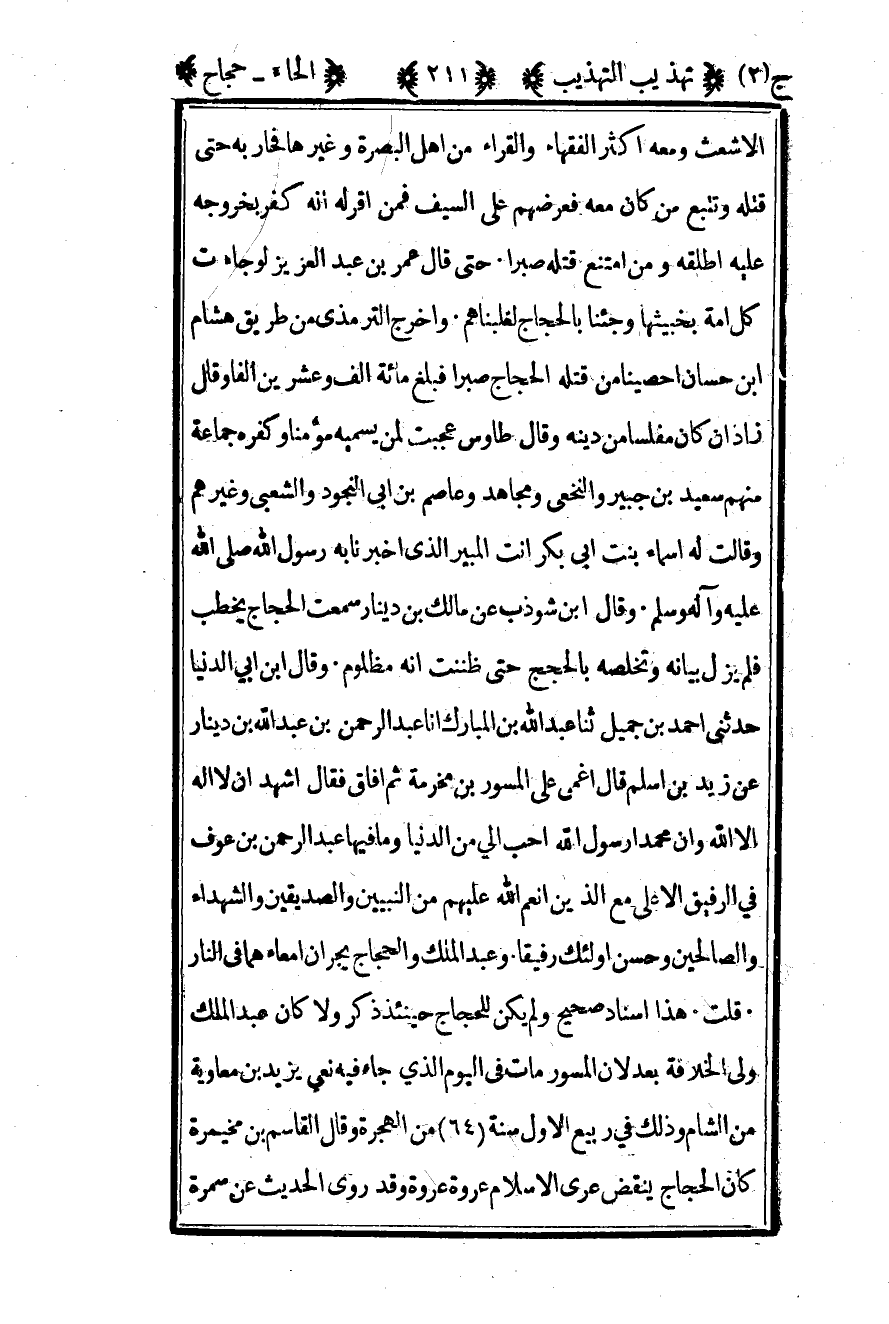 ج(٢) تهذيب التهذيب ٢١١ الحاء ـ حجاج
الاشعث ومعه اكثر الفقهاء والقراء من اهل البصرة وغيرها فحاربه حتى
قتله وتتبع من كان معه فعرضهم على السيف فمن اقرله انه كفر بخروجه
عليه اطلقه ومن امتنع قتله صبرا · حتى قال عمر بن عبد العزيز لو جاءت
كل امة بخبيثها وجئنا بالحجاج لغلبناهم · واخرج الترمذى من طريق هشام
ابن حسان احصينا من قتله الحجاج صبرا فبلغ مائة الف وعشرين الفا وقال
زاذان كان مفلسا من دينه وقال طاوس عجبت لمن يسميه مؤمنا وكفره جماعة
منهم سعيد بن جبير والنخعى ومجاهد وعاصم بن ابي النجود والشعبي وغيرهم
وقالت له اسماء بنت ابي بكر انت المبير الذى اخبرنا به رسول الله صلى الله
عليه وآله وسلم · وقال ابن شوذب عن مالك بن دينار سمعت الحجاج يخطب
فلم يزل بيانه وتخلصه بالحجج حتى ظننت انه مظلوم · وقال ابن ابي الدنيا
حدثنى احمد بن جميل ثنا عبد الله بن المبارك انا عبد الرحمن بن عبد الله بن دينار
عن زيد بن اسلم قال اغمى على المسور بن مخرمة ثم افاق فقال اشهد ان لا اله
الا الله وان محمدا رسول الله احب الي من الدنيا وما فيها عبد الرحمن بن عوف
في الرفيق الاعلى مع الذين انعم الله عليهم من النبيين والصديقين والشهداء
والصالحين وحسن اولئك رفيقا · وعبد الملك والحجاج يجران امعاءهما فى النار
· قلت · هذا اسناد صحيح ولم يكن للحجاج حينئذ ذكر ولا كان عبد الملك
ولى الخلافة بعد لان المسور مات فى اليوم الذي جاء فيه نعي يزيد بن معاوية
من الشام وذلك في ربيع الاول سنة (٦٤) من الهجرة وقال القاسم بن مخيمرة
كان الحجاج ينقض عرى الاسلام عروة عروة وقد روى الحديث عن سمرة